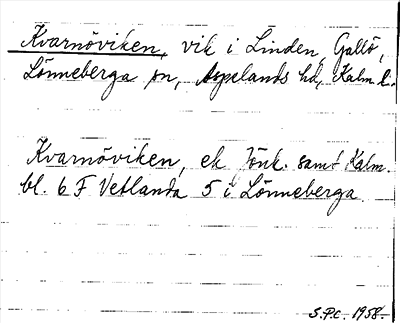 Kvarnöviken, vik i Linden, Galtö,
Lönneberga sn, Aspelands hd, Kalm. l.
Kvarnöviken, ek Jönk. samt Kalm.
bl. 6 F Vetlanda 5 i Lönneberga.
S.P.C. 1958.